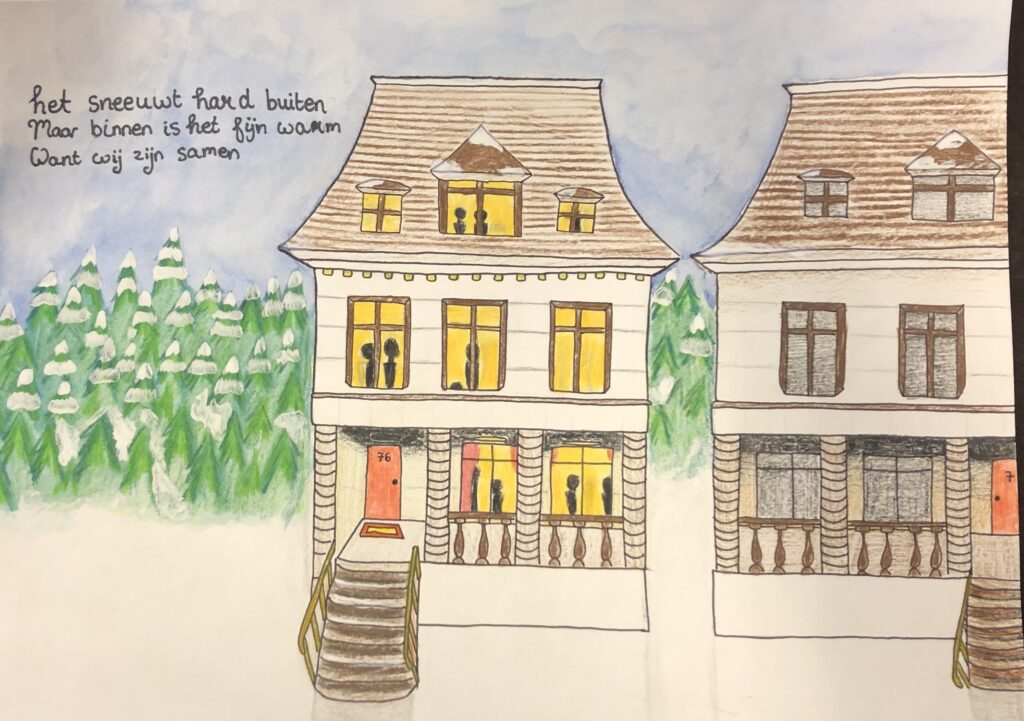 het sneeuwt hard buiten
Maar binnen is het fijn warm
Want wij zijn samen
76
7